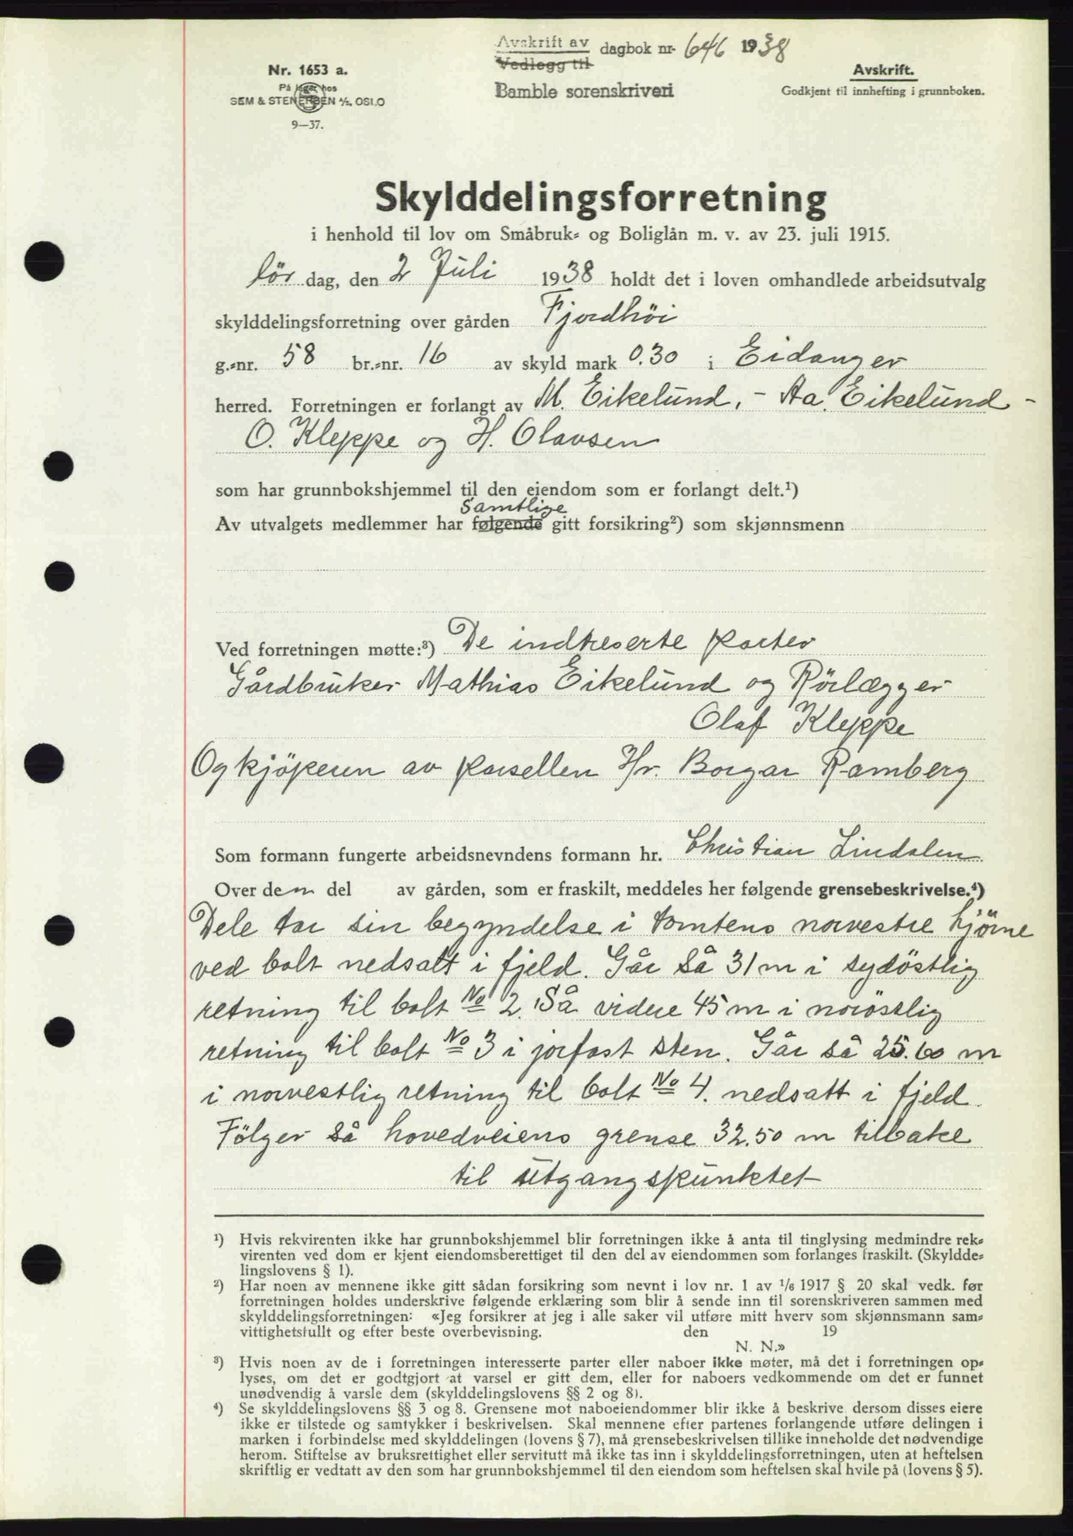 Avskrift av dagbok nr. 646 1938
Vedlegg til
Bamble sorenskriveri
Nr. 1653 a.
På lager hos
SEM & STENERSEN A/S, OSLO
9—37.
Avskrift.
Godkjent til innhefting i grunnboken.
Skylddelingsforretning
i henhold til lov om Småbruk- og Boliglån m. v. av 23. juli 1915.
lör dag, den 2 Juli 1938 holdt det i loven omhandlede arbeidsutvalg
skylddelingsforretning over gården Fjordhöi
g.-nr. 58 br.-nr. 16 av skyld mark 0.30 i Eidanger
herred. Forretningen er forlangt av M. Eikelund, - Aa. Eikelund -
O. Kleppe og H. Olavsen
som har grunnbokshjemmel til den eiendom som er forlangt delt.¹)
Samtlige
Av utvalgets medlemmer har følgende gitt forsikring²) som skjønnsmenn
Ved forretningen møtte:³) De indtreserte parter
Gårdbruker Mathias Eikelund og Rörlægger
Olaf Kleppe
Og kjöperen av parsellen Hr. Borgar Ramberg
Som formann fungerte arbeidsnevndens formann hr. Christian Lindalen
Over den del av gården, som er fraskilt, meddeles her følgende grensebeskrivelse.⁴)
Dele tar sin begyndelse i tomtens norvestre hjörne
ved bolt nedsatt i fjeld. Går så 31 m i sydöstlig
retning til bolt No 2. Så videre 45 m i noröstlig
retning til bolt No 3 i jorfast sten. Går så 25.60 m
i norvestlig retning til bolt No 4. nedsatt i fjeld.
Fölger så hovedveiens grense 32.50 m tilbake
til utgangspunktet
¹) Hvis rekvirenten ikke har grunnbokshjemmel blir forretningen ikke å anta til tinglysing medmindre rek-
virenten ved dom er kjent eiendomsberettiget til den del av eiendommen som forlanges fraskilt. (Skyldde-
lingslovens § 1).
²) Har noen av mennene ikke gitt sådan forsikring som nevnt i lov nr. 1 av 1/6 1917 § 20 skal vedk. før
forretningen holdes underskrive følgende erklæring som blir å sende inn til sorenskriveren sammen med
skylddelingsforretningen: «Jeg forsikrer at jeg i alle saker vil utføre mitt hverv som skjønnsmann sam-
vittighetsfullt og efter beste overbevisning. den 19
N. N.»
³) Hvis noen av de i forretningen interesserte parter eller naboer ikke møter, må det i forretningen op-
lyses, om det er godtgjort at varsel er gitt dem, eller for naboers vedkommende om det er funnet
unødvendig å varsle dem (skylddelingslovens §§ 2 og 8).
⁴) Se skylddelingslovens §§ 3 og 8. Grensene mot naboeiendommer blir ikke å beskrive dersom disses eiere
ikke er tilstede og samtykker i beskrivelsen. Skal mennene efter partenes forlangende utføre delingen i
marken i forbindelse med skylddelingen (lovens § 7), må grensebeskrivelsen tillike inneholde det nødvendige
herom. Stiftelse av bruksrettighet eller servitutt må ikke tas inn i skylddelingsforretningen, uten at heftelsen
skriftlig er vedtatt av den som har grunnbokshjemmel til den eiendom som heftelsen skal hvile på (lovens § 5).